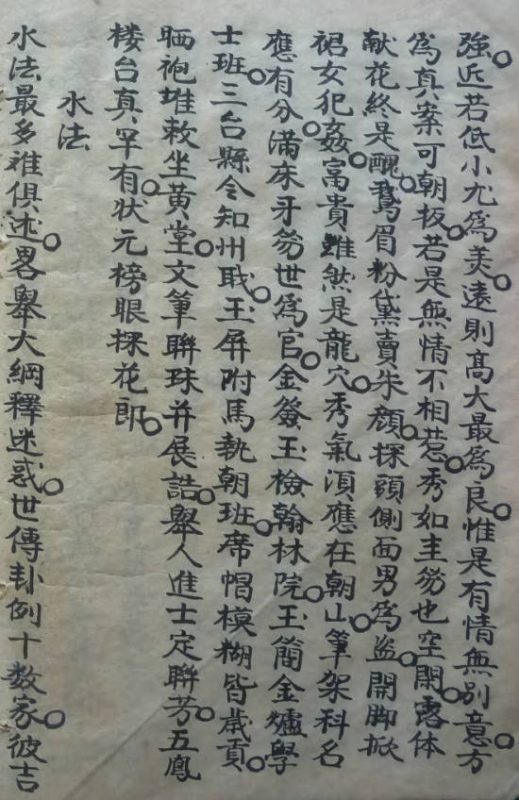 強近若低小尤為美。遠則高大最為良。惟是有情無別意。方
為真案可朝扳。若是無情不相惹。秀如圭笏也空閑。露体
献花終是醜。鵞眉粉黛賣朱顏。探頭側面男為盜。開脚掀
裙女犯姦。富貴雖然是龍穴。秀氣湏應在朝山。筆架科名
應有分。滿床牙笏世為官。金簽玉檢翰林院。玉簡金爐學
士班。三台縣令知州職。玉屏附馬執朝班。席帽模糊皆歲貢。
晒袍堆敕坐黃堂。文筆聯珠并展誥。舉人進士定聯芳。五鳳
楼台真罕有。狀元榜眼探花郎。
水法
水法最多难俱述。畧舉大綱釋迷惑。世傳卦例十数家。彼吉